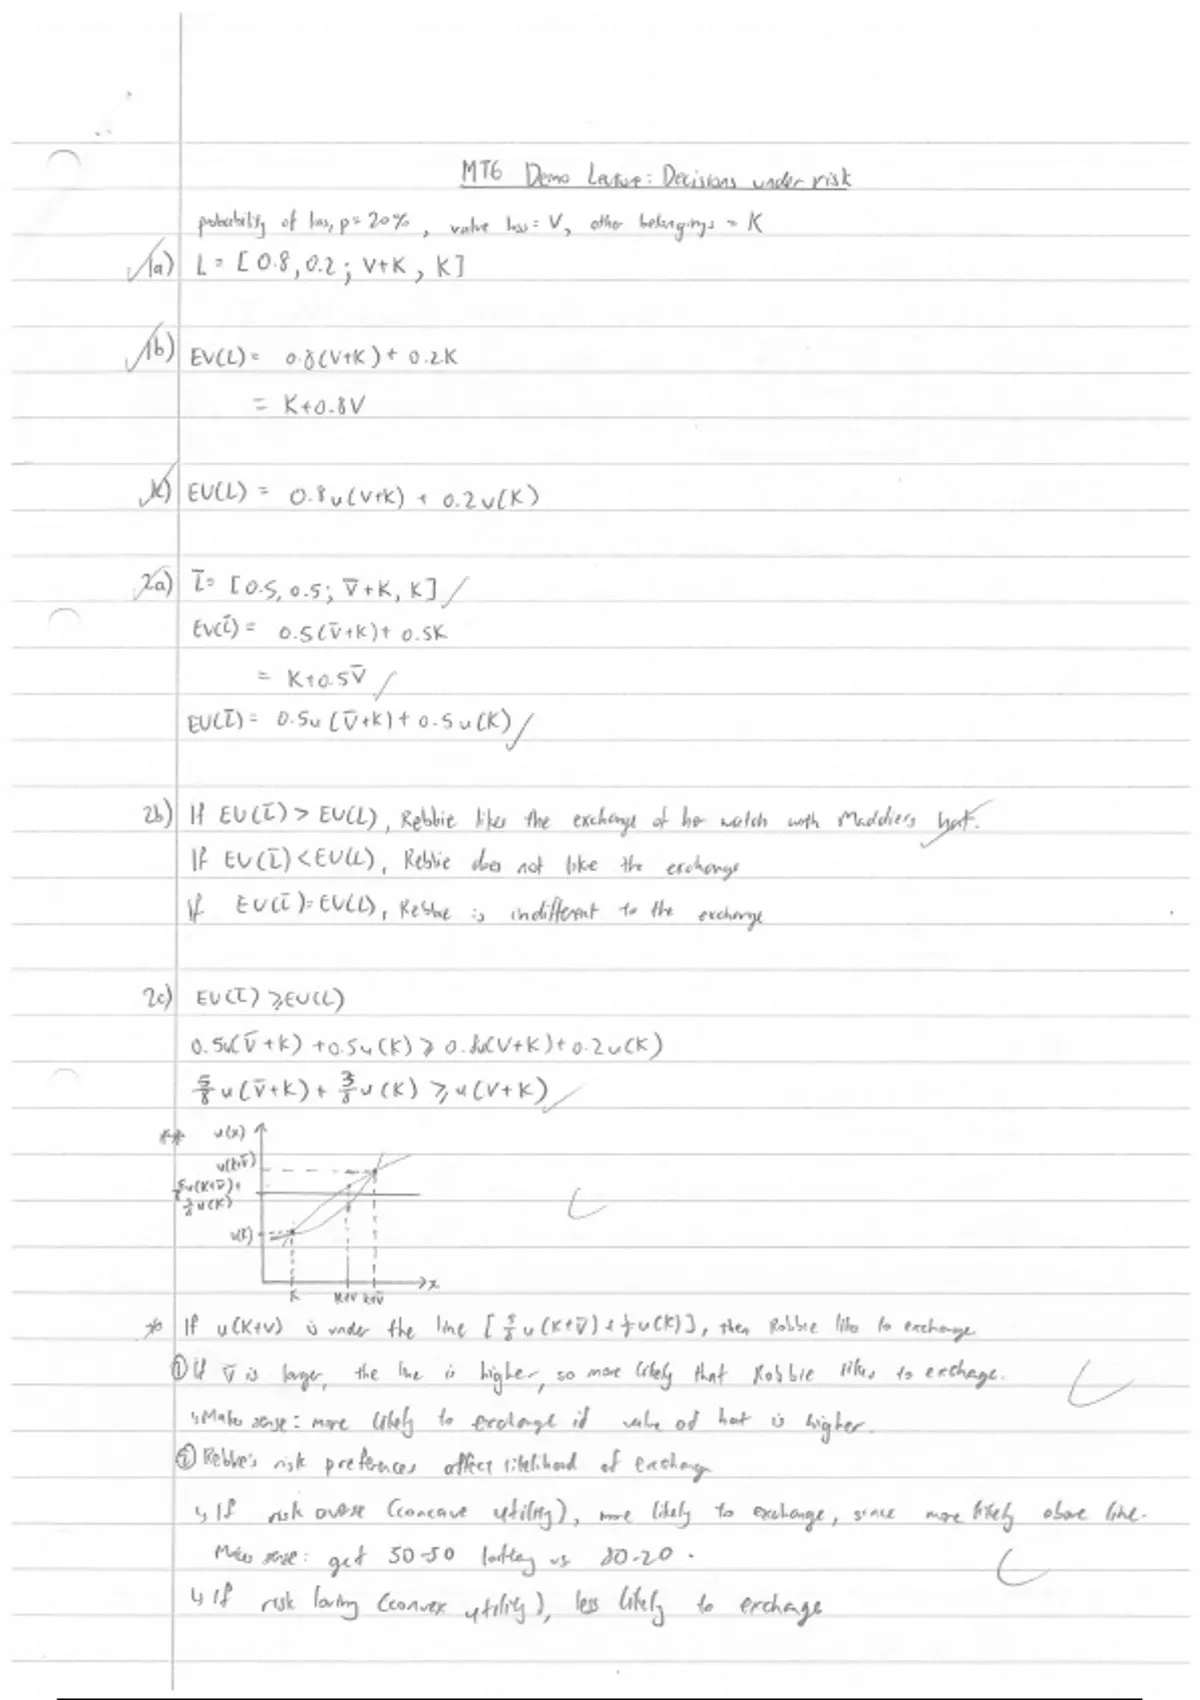 MT6 Demo Lecture: Decisions under risk
probability of loss, p = 20%, value loss = V, other belongings = K
1a) L = [0.8, 0.2; V+K, K]
1b) EV(L) = 0.8(V+K) + 0.2K
= K+0.8V
1c) EU(L) = 0.8u(V+K) + 0.2u(K)
2a) L̅ = [0.5, 0.5; V̅+K, K]
EV(L̅) = 0.5(V̅+K) + 0.5K
= K+0.5V̅
EU(L̅) = 0.5u(V̅+K) + 0.5u(K)
2b) If EU(L̅) > EU(L), Robbie likes the exchange of her watch with Maddie's hat.
If EU(L̅) < EU(L), Robbie does not like the exchange
If EU(L̅) = EU(L), Robbie is indifferent to the exchange
2c) EU(L̅) ⩾ EU(L)
0.5u(V̅+K) + 0.5u(K) ⩾ 0.8u(V+K) + 0.2u(K)
5/8 u(V̅+K) + 3/8 u(K) ⩾ u(V+K)
** u(x)
u(K+V̅)
5/8 u(K+V̅) +
3/8 u(K)
u(K)
x
K K+V K+V̅
* If u(K+V) is under the line [5/8 u(K+V̅) + 3/8 u(K)], then Robbie likes to exchange
① If V̅ is larger, the line is higher, so more likely that Robbie likes to exchange.
↳ Makes sense: more likely to exchange if value of hat is higher.
② Robbie's risk preferences affect likelihood of exchange
↳ If risk averse (concave utility), more likely to exchange, since more likely above line.
Makes sense: get 50-50 lottery vs 80-20.
↳ If risk loving (convex utility), less likely to exchange